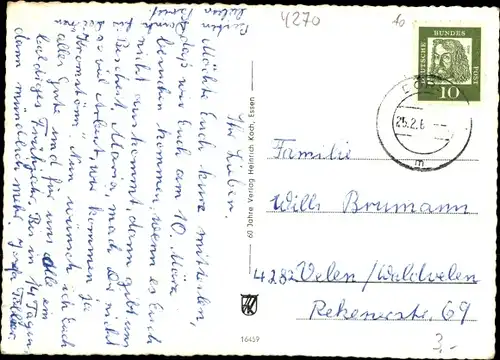 4270
Ihr Lieben,
Möchte Euch kurz mitteilen,
daß wir Euch am 10. März
besuchen kommen, wenn es Euch
nicht auskommt, dann gebt uns
Bescheid, Maria, mach Du nicht
so viel Arbeit, wir kommen ja
Nun wünsch ich Euch
alles Gute und für uns alle ein
baldiges Frühjahr, Bis in 14 Tagen,
dann mündlich mehr,
60 Jahre Verlag Heinrich Koch, Essen
16459
DEUTSCHE BUNDESPOST
10
25.2.6
m
Familie
Willi Brumann
4282 Velen/Waldvelen
Rekenerstr. 69
3,-